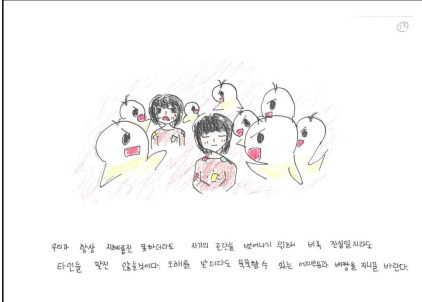 우리가 항상 지혜롭진 못하더라도 자기의 곤란을 벗어나기 위해서 비록 진실일지라도
타인을 팔진 않을 것이다. 오해를 받더라도 묵묵할 수 있는 어리석음과 배짱을 지니길 바란다.